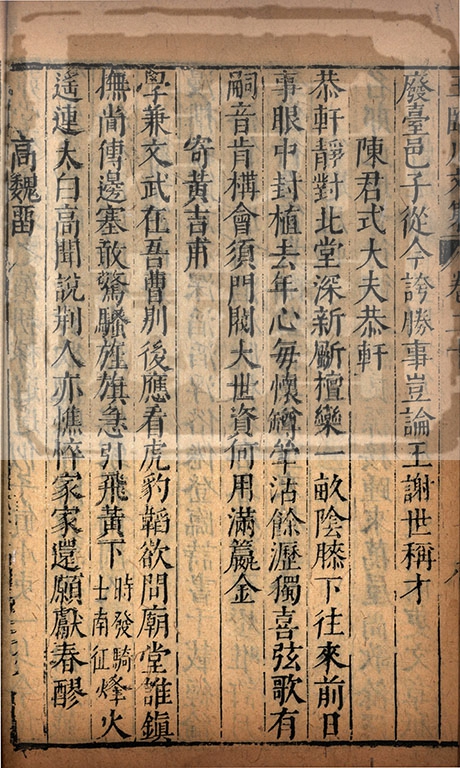 王臨川文集 卷二十
廢臺邑子從今誇勝事豈論王謝世稱才
陳君式大夫恭軒
恭軒靜對北堂深新斸檀欒一畝陰膝下往來前日
事眼中封植去年心每懷罇斝沾餘瀝獨喜弦歌有
嗣音肯構會須門閥大世資何用滿籯金
寄黃吉甫
學兼文武在吾曹別後應看虎豹韜欲問廟堂誰鎮
撫尚傳邊塞敢驚騷旌旗急引飛黃下時發騎士南征烽火
遙連太白高聞說荆人亦憔悴家家還願獻春醪
高魏留